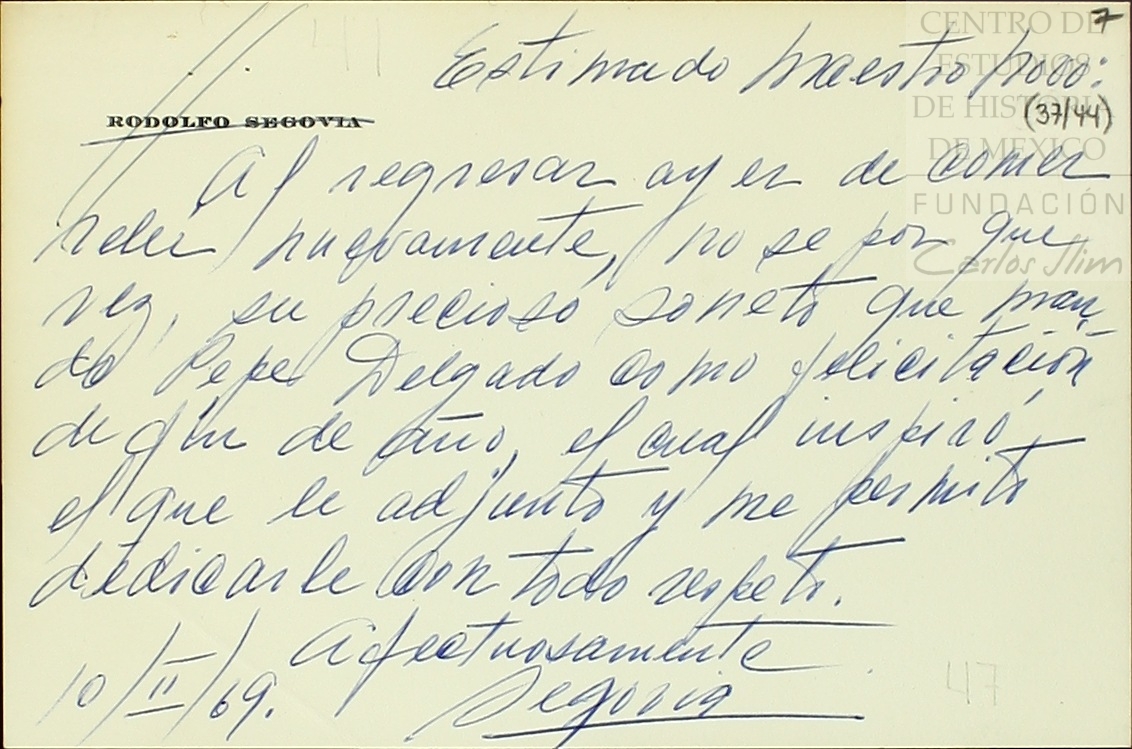 7
CENTRO DE
ESTUDIOS
DE HISTORIA
DE MÉXICO
FUNDACIÓN
Carlos Slim
Estimado Maestro Novo:
(37/44)
RODOLFO SEGOVIA
Al regresar ayer de comer
releí nuevamente, no se por que
vez, su precioso soneto que man-
do Pepe Delgado como felicitación
de fin de año, el cual inspiró
el que le adjunto y me permito
dedicarle con todo respeto.
Afectuosamente
Segovia
10/II/69.
47